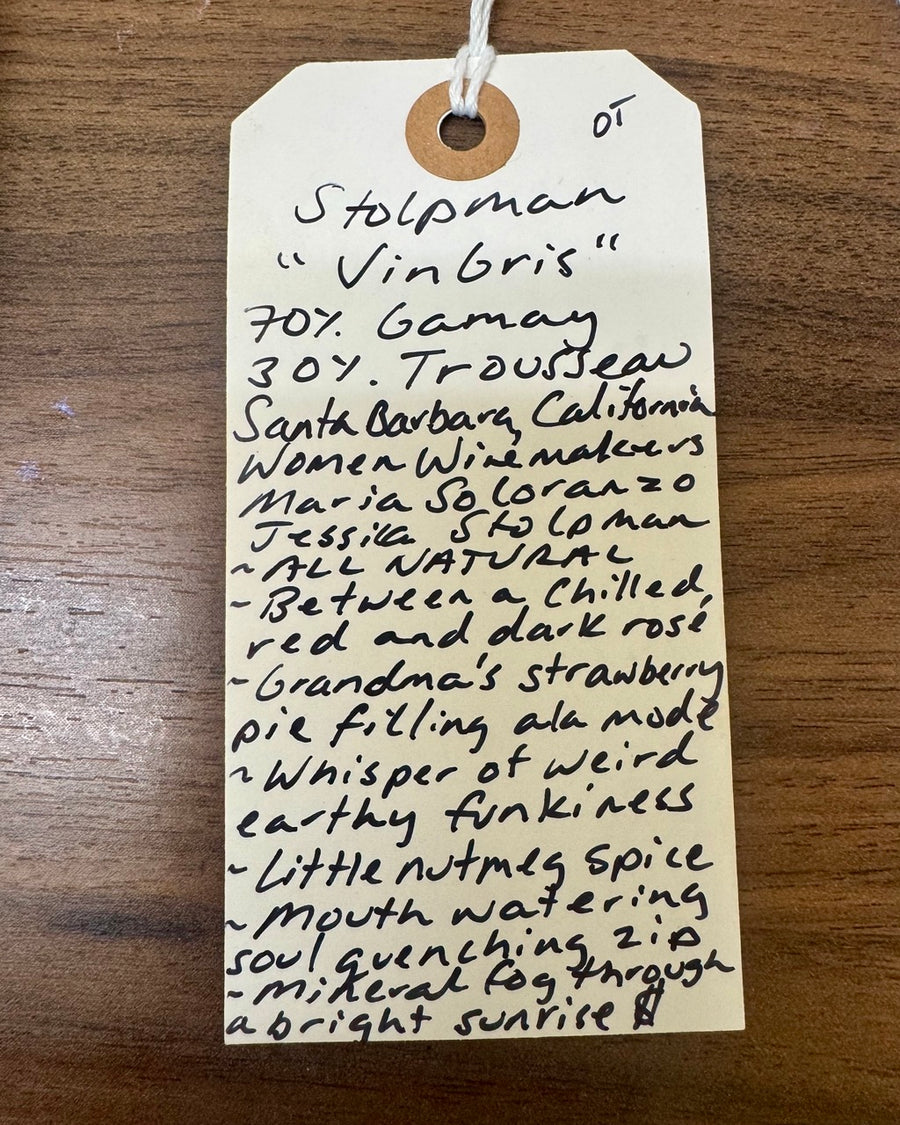 OT
Stolpman
"Vin Gris"
70% Gamay
30%. Trousseau
Santa Barbara, California
Women Winemakers
Maria Soloranzo
Jessica Stolpman
~ ALL NATURAL
~ Between a Chilled,
red and dark rosé
~ Grandma's strawberry
pie filling ala modé
~ Whisper of weird
earthy funkiness
~ Little nutmeg spice
~ Mouth watering
soul quenching zip
~ Mineral fog through
a bright sunrise